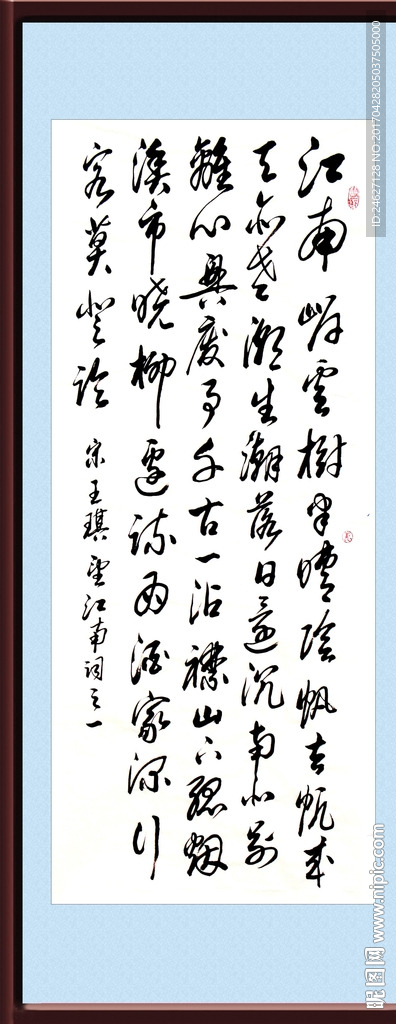 江南岸雲樹半晴陰帆去帆來
天亦老潮生潮落日還沉南北別
離心興廢事千古一沾襟山下孤烟
漁市曉柳邊疏雨酒家深行
客莫登臨
宋王琪望江南詞之一
ID:24627128 NO.20170428205037505000
昵图网 www.nipic.com